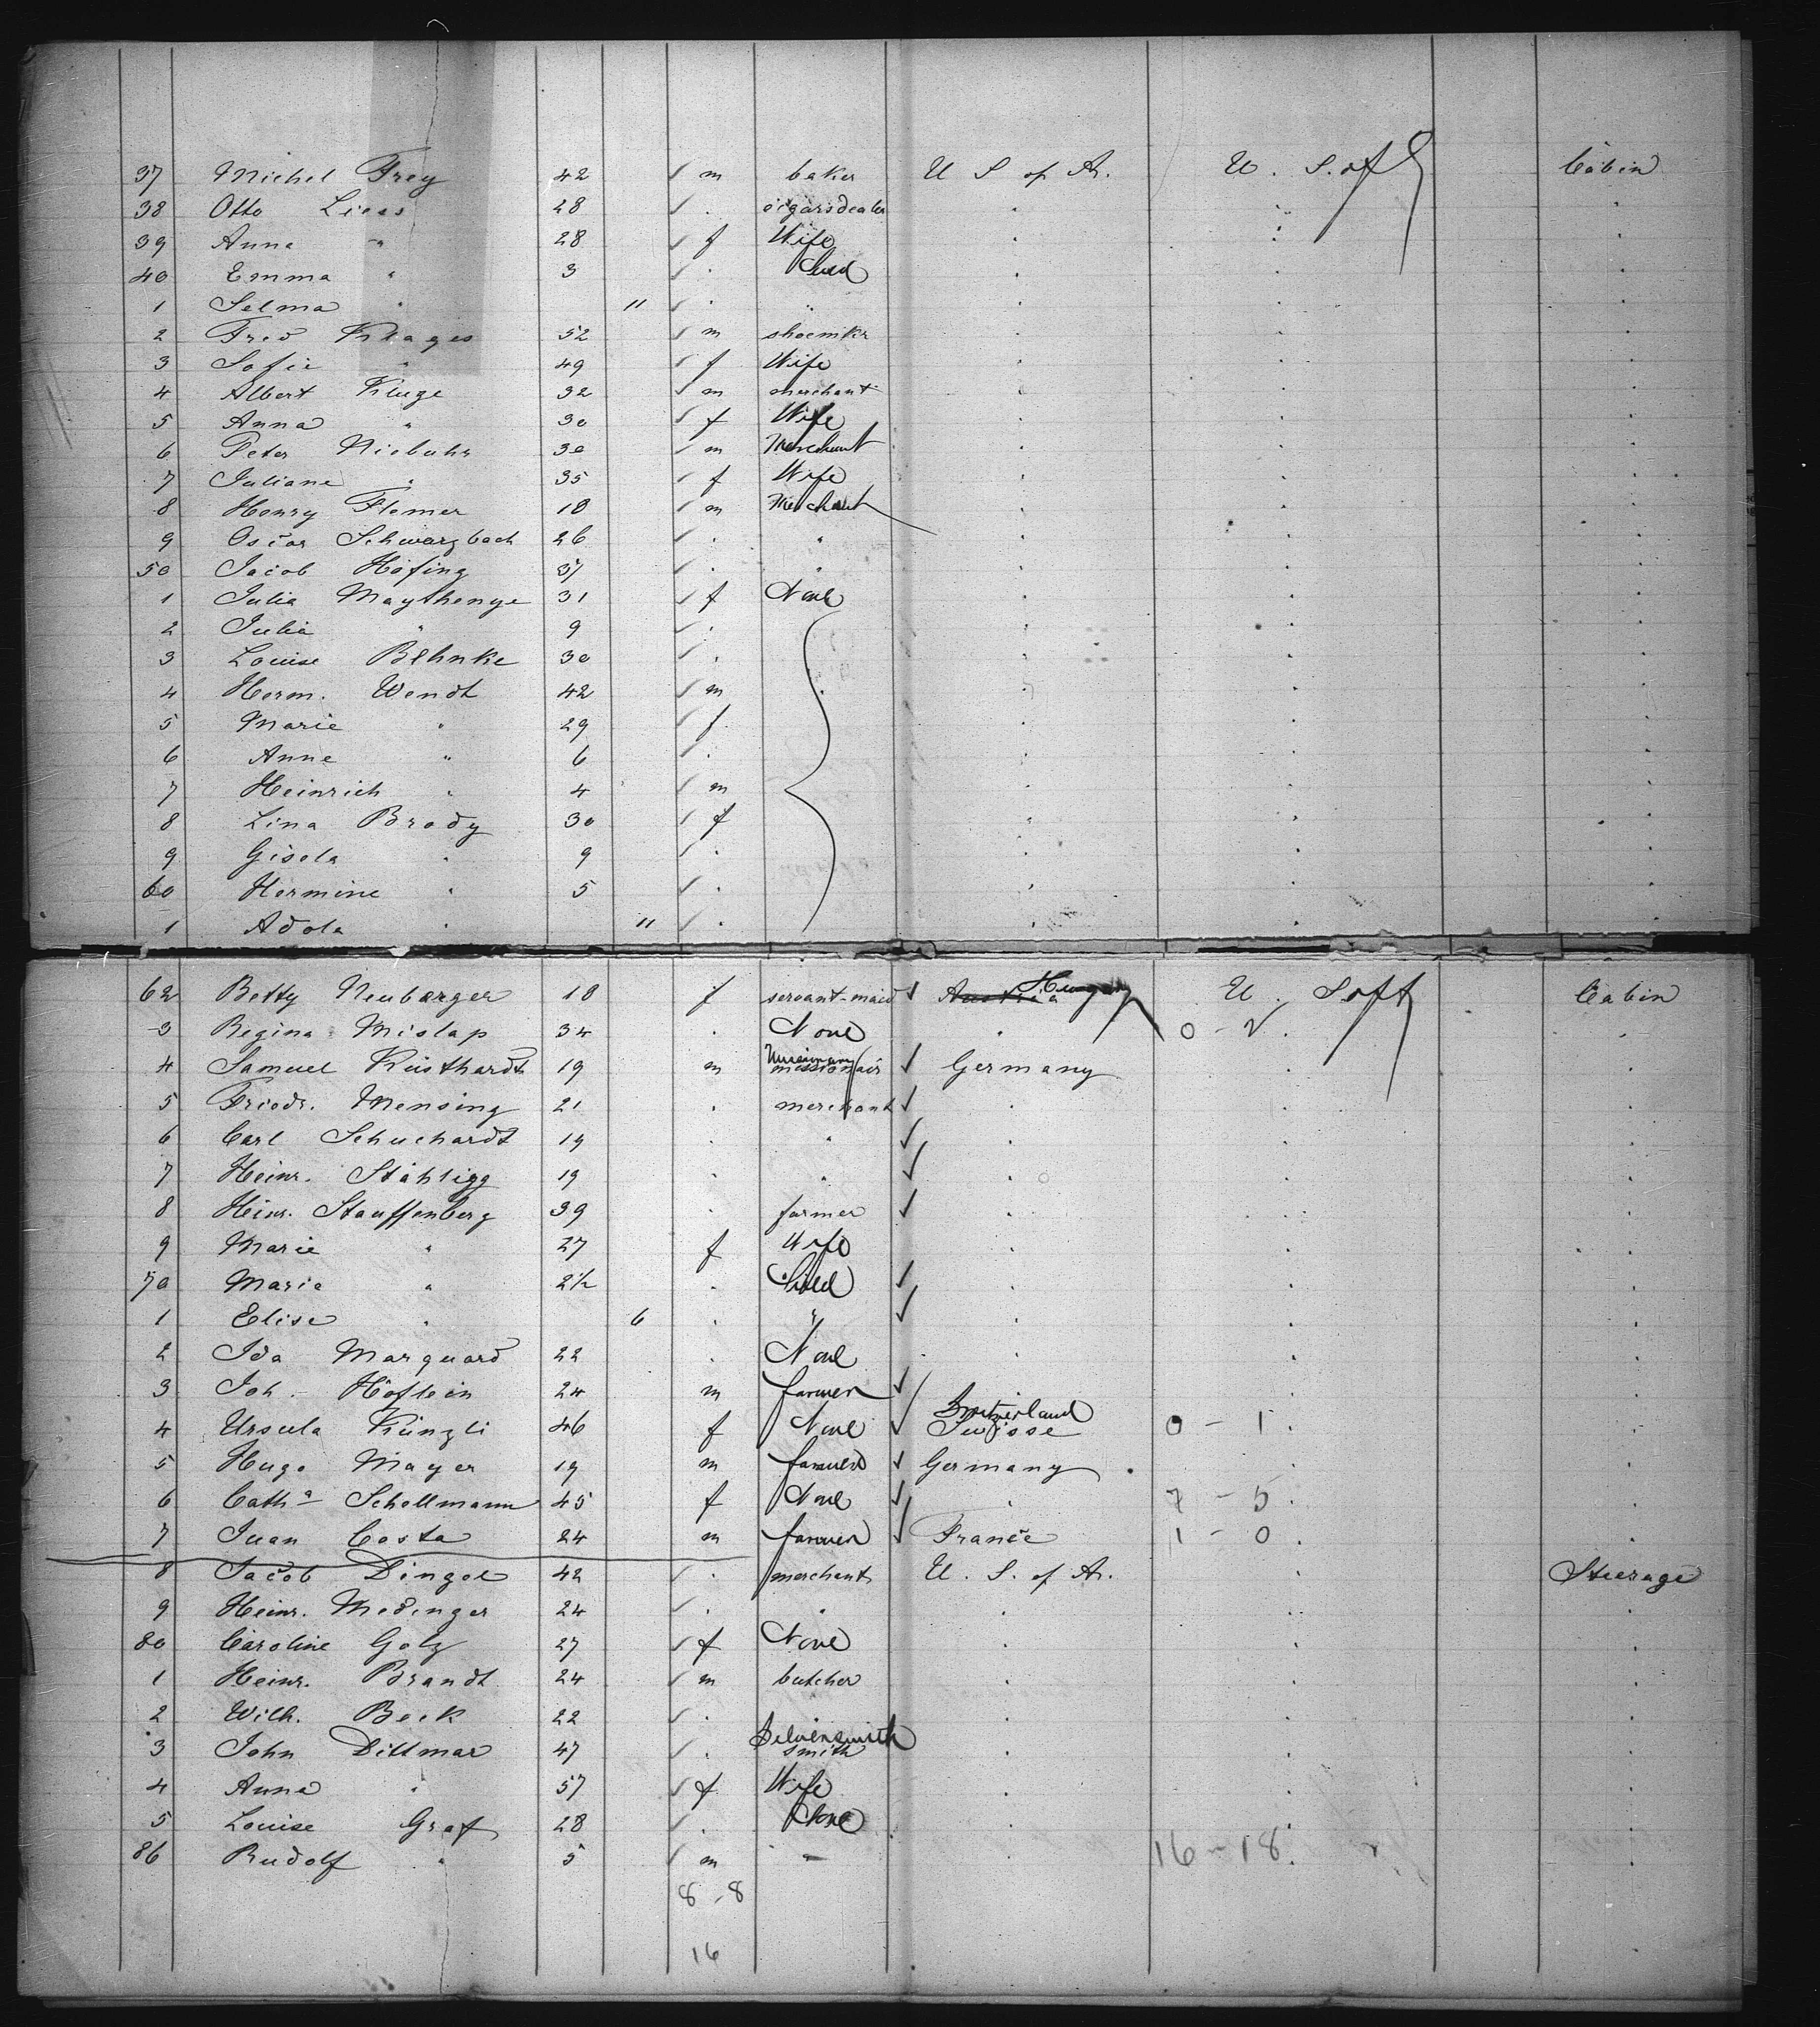 37 Michel Frey 42 m baker U S of A. U. S. of A Cabin
38 Otto Liess 28 " cigarsdealer " " "
39 Anna " 28 f Wife " " "
40 Emma " 3 " Child " " "
1 Selma " 11 " " " " "
2 Fred Klages 52 m shoemkr " " "
3 Sofie " 49 f Wife " " "
4 Albert Kluge 32 m merchant " " "
5 Anna " 30 f Wife " " "
6 Peter Niebuhr 30 m Merchant " " "
7 Juliane " 35 f Wife " " "
8 Henry Flemer 18 m Merchant " " "
9 Oscar Schwarzbach 26 " " " " "
50 Jacob Höfing 37 " " " " "
1 Julia Maythenye 31 f None " " "
2 Julia " 9 " " " "
3 Louise Behnke 30 " " " "
4 Herm. Wendt 42 m " " "
5 Marie " 29 f " " "
6 Anne " 6 " " " "
7 Heinrich " 4 m " " "
8 Lina Brody 30 f " " "
9 Gisela " 9 " " " "
60 Hermine " 5 " " " "
1 Adola " 11 " " " "
62 Betty Neuberger 18 f servant-maid Austria Hungary U. S of A Cabin
3 Regina Mislap 34 " None " 0 - 2 "
4 Samuel Küsthardt 19 m missionair Germany " "
5 Friedr. Mensing 21 " merchant " " "
6 Carl Schuchardt 19 " " " " "
7 Heinr. Stähligg 19 " " " " "
8 Heinr. Stauffenberg 39 " farmer " " "
9 Marie " 27 f Wife " " "
70 Marie " 2½ " Child " " "
1 Elise " 6 " " " " "
2 Ida Marquard 22 " None " " "
3 Joh. Höflein 24 m farmer " " "
4 Ursula Künzli 46 f None Switzerland Suisse 0 - 1 "
5 Hugo Mayer 19 m farmer Germany " "
6 Catha Schellmann 45 f None " 7 - 5 "
7 Juan Costa 24 m farmer France 1 - 0 "
8 Jacob Dingel 42 " merchant U. S. of A. " Steerage
9 Heinr. Medinger 24 " " " " "
80 Caroline Golz 27 f None " " "
1 Heinr. Brandt 24 m butcher " " "
2 Wilh. Beck 22 " " " " "
3 John Dittmar 47 " Silversmith smith " " "
4 Anna " 57 f Wife " " "
5 Louise Graf 28 " None " " "
86 Rudolf " 5 m " " 16 - 18 "
8 - 8
16